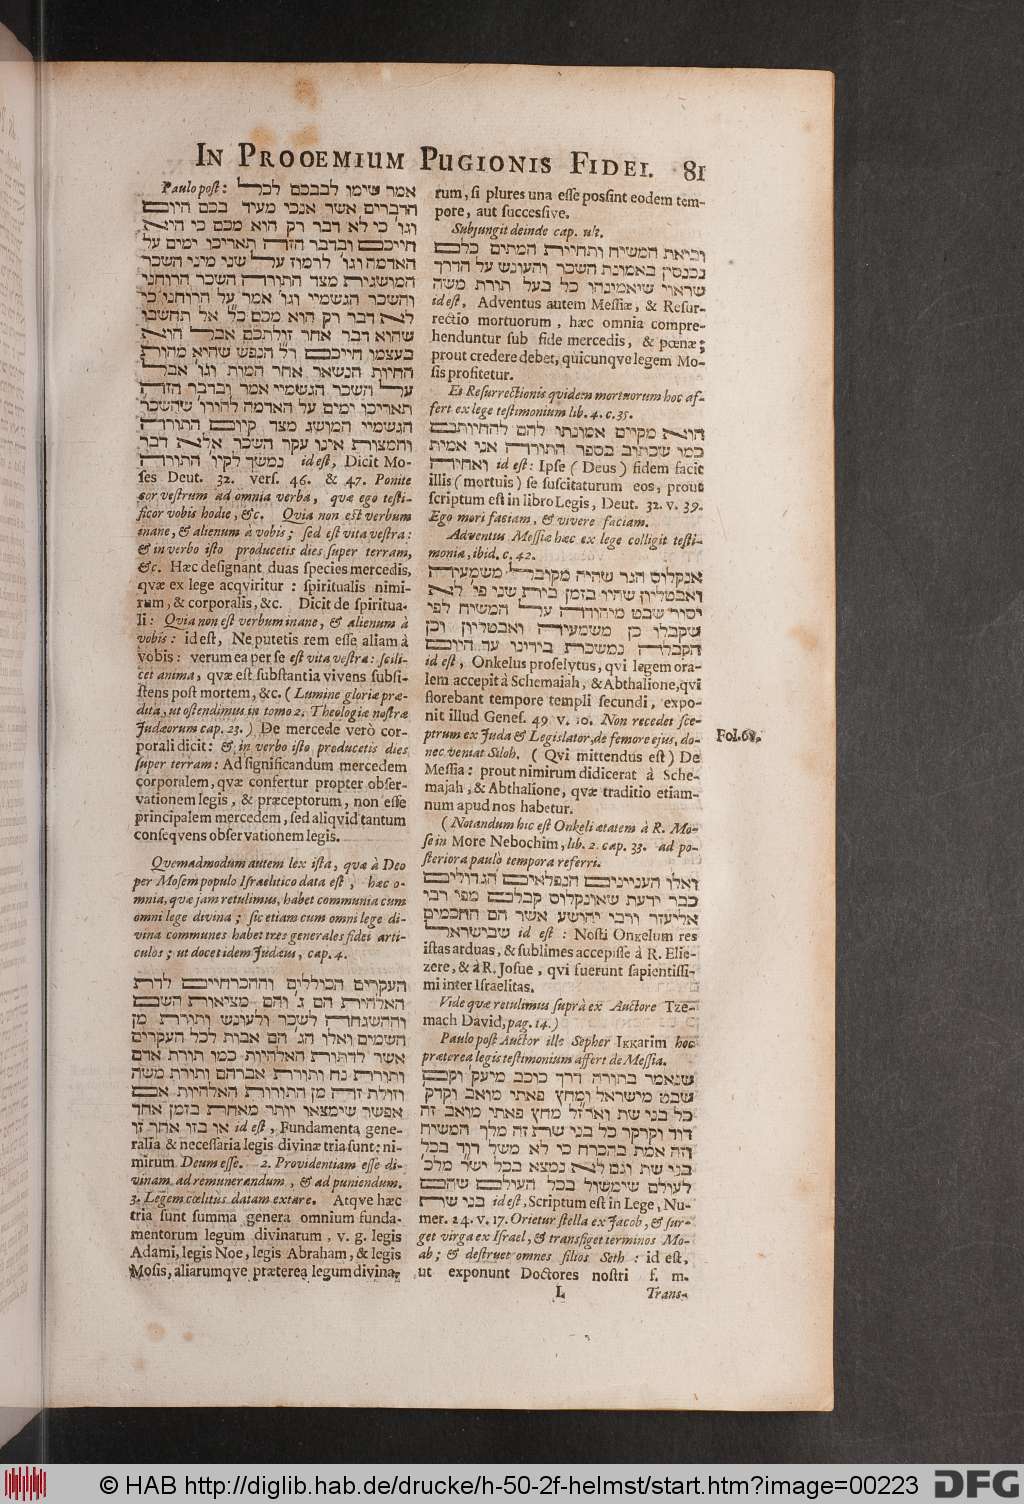 IN PROOEMIUM PUGIONIS FIDEI. 81
Paulo post: אמר שימו לבבכם לכל
הדברים אשר אנכי מעיד בכם היום
וגו' כי לא דבר רק הוא מכם כי היא
חייכם ובדבר הזה תאריכו ימים על
האדמה וגו' לרמוז על שני מיני השכר
המושגית מצד התורה השכר הרוחני
והשכר הגשמיי וגו' אמר על הרוחני כי
לא דבר רק הוא מכם כל אל תחשבו
שהוא דבר אחר זולתכם אבל הוא
בעצמו חייכם רל הנפש שהיא מהות
החיות הנשאר אחר המות וגו' אבל
על השכר הגשמיי אמר ובדבר הזה
תאריכו ימים על האדמה להורו' שהשכר
הגשמיי המושג מצד קיום התורה
והמצות אינו עקר השכר אלא דבר
נמשך לקיו' התורה id est, Dicit Mo-
ses Deut. 32. vers. 46. & 47. Ponite
cor vestrum ad omnia verba, quæ ego testi-
ficor vobis hodie, &c. Qvia non est verbum
inane, & alienum à vobis; sed est vita vestra:
& in verbo isto producetis dies super terram,
&c. Hæc designant duas species mercedis,
qvæ ex lege acqviritur: spiritualis nimi-
rum, & corporalis, &c. Dicit de spiritua-
li: Qvia non est verbum inane, & alienum à
vobis: id est, Ne putetis rem esse aliam à
vobis: verum ea per se est vita vestra: scili-
cet anima, qvæ est substantia vivens subsi-
stens post mortem, &c. (Lumine gloriæ præ-
dita, ut ostendimus in tomo 2. Theologiæ nostræ
Judæorum cap. 23.) De mercede verò cor-
porali dicit: & in verbo isto producetis dies
super terram: Ad significandum mercedem
corporalem, qvæ confertur propter obser-
vationem legis, & præceptorum, non esse
principalem mercedem, sed aliqvid tantum
conseqvens observationem legis.
Quemadmodum autem lex ista, quæ à Deo
per Mosem populo Israelitico data est, hæc o-
mnia, quæ jam retulimus, habet communia cum
omni lege divina; sic etiam cum omni lege di-
vina communes habet tres generales fidei arti-
culos; ut docet idem Judæus, cap. 4.
העקרים הכוללים וההכרחיים לדת
האלהית הם ג' והם מציאות השם
וההשגחה לשכר ולעונש ותורת מן
השמים ואלו הג' הם אבות לכל העקרים
אשר לדתות האלהיות כמו תורת אדם
ותורת נח ותורת אברהם ותורת משה
וזולת זה מן התורות האלהיות אם
אפשר שימצאו יותר מאחת בזמן אחד
או בזו אחר זו id est, Fundamenta gene-
ralia & necessaria legis divinæ tria sunt: ni-
mirum Deum esse. 2. Providentiam esse di-
vinam ad remunerandum, & ad puniendum.
3. Legem cœlitus datam extare. Atqve hæc
tria sunt summa genera omnium funda-
mentorum legum divinarum, v. g. legis
Adami, legis Noe, legis Abraham, & legis
Mosis, aliarumqve præterea legum divina-
rum, si plures una esse possint eodem tem-
pore, aut successive.
Subjungit deinde cap. ult.
וביאת המשיח ותחיית המתים כלם
נכנסין באמונת השכר והעונש על הדרך
שראוי שיאמינהו כל בעל תורת משה
id est, Adventus autem Messiæ, & Resur-
rectio mortuorum, hæc omnia compre-
henduntur sub fide mercedis, & pœnæ;
prout credere debet, quicunqve legem Mo-
sis profitetur.
Et Resurrectionis quidem mortuorum hoc af-
fert ex lege testimonium lib. 4. c. 35.
הוא מקיים אמונתו להם להחיותם
כמו שכתוב בספר התורה אני אמית
ואחיה id est: Ipse (Deus) fidem facit
illis (mortuis) se suscitaturum eos, prout
scriptum est in libro Legis, Deut. 32. v. 39.
Ego mori faciam, & vivere faciam.
Adventus Messiæ hæc ex lege colligit testi-
monia, ibid. c. 42.
אנקלוס הגר שהיה מקובל משמעיה
ואבטליון שהיו בזמן בית שני פי' לא
יסור שבט מיהודה על המשיח לפי
שקבלו כן משמעיה ואבטליון וכן
הקבלה נמשכת בידינו עד היום
id est, Onkelus proselytus, qvi legem ora-
lem accepit à Schemaiah, & Abthalione, qvi
florebant tempore templi secundi, expo-
nit illud Genes. 49 v. 10. Non recedet sce-
ptrum ex Juda & Legislator, de femore ejus, do-
nec veniat Siloh. (Qvi mittendus est) De
Messia: prout nimirum didicerat à Sche-
majah, & Abthalione, qvæ traditio etiam-
num apud nos habetur.
Fol. 68.
(Notandum hic est Onkeli ætatem à R. Mo-
se in More Nebochim, lib. 2. cap. 33. ad po-
steriora paulo tempora referri.
ואלו העניינים הנפלאים הגדולים
כבר ידעת שאונקלוס קבלם מפי רבי
אליעזר ורבי יהושע אשר הם החכמים
שבישראל id est: Nosti Onkelum res
istas arduas, & sublimes accepisse à R. Elie-
zere, & à R. Josue, qvi fuerunt sapientissi-
mi inter Israelitas.
Vide quæ retulimus suprà ex Auctore Tze-
mach David, pag. 14.)
Paulo post Auctor ille Sepher Ikkarim hoc
præterea legis testimonium affert de Messia.
שנאמר בתורה דרך כוכב מיעק' וקם
שבט מישראל ומחץ פאתי מואב וקרק'
כל בני שת ואר"זל מחץ פאתי מואב זה
דוד וקרקר כל בני שת זה מלך המשיח
וזה אמת בהכרח כי לא משל דוד בכל
בני שת וגם לא נמצא בכל ישר' מלכ'
לעולם שימשול בכל העולם שהם
בני שת id est, Scriptum est in Lege, Nu-
mer. 24. v. 17. Orietur stella ex Jacob, & sur-
get virga ex Israel, & transfiget terminos Mo-
ab; & destruet omnes filios Seth: id est,
ut exponunt Doctores nostri f. m.
L Trans-
© HAB http://diglib.hab.de/drucke/h-50-2f-helmst/start.htm?image=00223 DFG